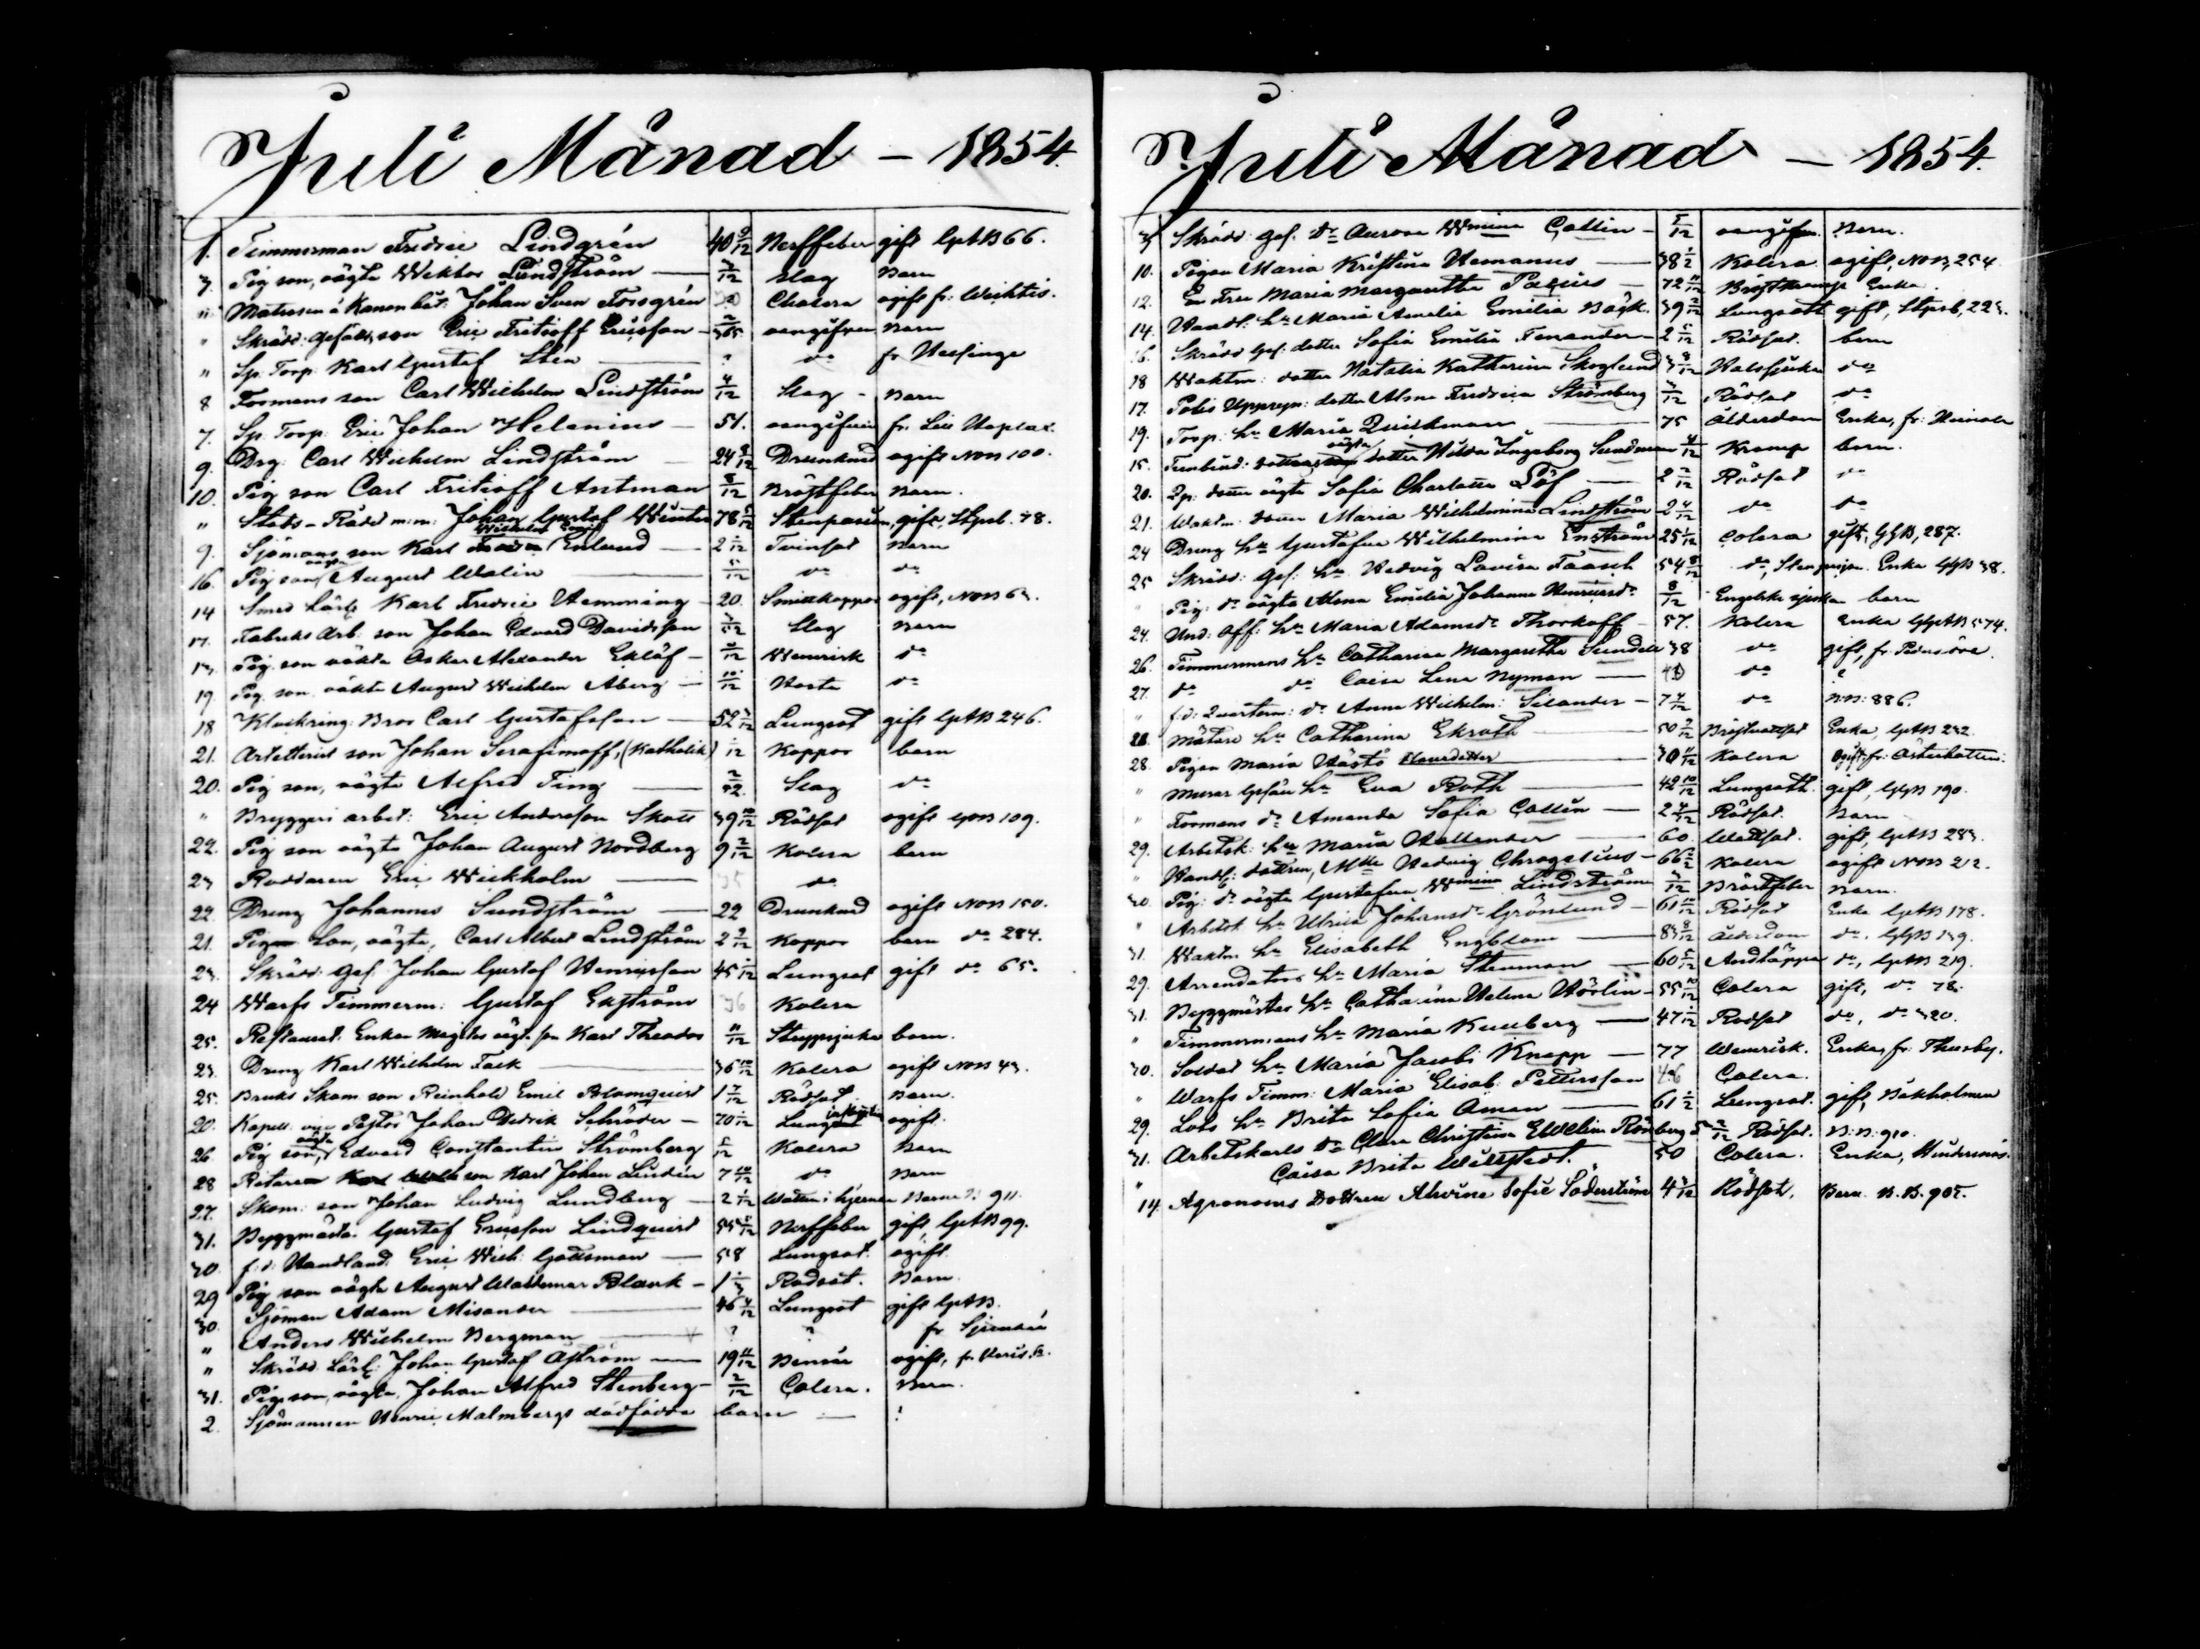 Juli Månad - 1854.
1. Timmerman Fredric Lindgrén 40 9/12 Nerffeber gift GAB 66.
7. Pig son, oägta Wiktor Lundström 3/12 Slag Barn
" Matrosen å Kanon båt: Johan Sven Forsgrén Cholera ogift fr: Weihtis.
" Skrädd: Gesälls son Eric Fritioff Ericsson oangifven Barn
" Sp. Torp. Karl Gustaf Sten ? do fr
8 Formans son Carl Wilhelm Lindström 4/12 Slag - Barn
7. Sp. Torp. Eric Johan Helenius - 51. oangifven fr. Lill Hoplax
9. Drg. Carl Wilhelm Lindström 24 8/12 Drunknad ogift NOB 100.
10. Pig son Carl Fritioff Antman 8/12 Bröstfeber Barn.
" Stats-Rådet m:m: Johan Gustaf Winter 78 Stenpassion, gift, Stpsb. 38.
9. Sjömans son Karl Wilhelm Enlund 2 1/12 Tvinsot Barn
16. Pig son, oägta August Walin 5/12 do do
14 Smed Lärl: Karl Fredric Hemming - 20. Smittkoppor ogift, NOB 63.
17. Fabriks Arb: son Johan Edvard Davidsson 3/52 Slag Barn
13. Pig. son oäkta Oskar Alexander Eklöf - Barn do
19. Pig. son oäkta August Wilhelm Åberg 10/12 Hosta do
18 Klockring: Bror Carl Gustafsson 52 3/12 Lungsot gift GAB 246.
21. Artelleriest son Johan Serafimoff, (Katholik) 1/12 Koppor barn
20. Pig son, oägta Alfred Ting 2/52. Slag do
" Bryggeri arbet: Eric Andersson Skott 39 10/12 Rödsot ogift GOB 109.
22. Pig son oägta Johan August Nordberg 9 2/12 Kolera barn
23 Roddaren Eric Wickholm 35 do
22. Dreng Johannes Sundström 22 Drunknad ogift NOB 150.
21. Pigan Son, oägta, Carl Albert Lindström 2 9/12 Koppor barn do 284.
23. Skrädd: Gef. Johan Gustaf Henricsson 45 1/12 Lungsot gift do 65.
24 Warfs Timmerm: Gustaf Ekström 36 Kolera
25. Restaurat: Enkan Megites oägt. son Karl Theodor 11/12 Struppsjuka barn.
23. Dreng Karl Wilhelm Falk 36 10/12 Kolera ogift NOB 43.
25. Bruks Skom. son Reinhold Emil Blomquist 1 7/12 Rödsot Barn.
20. Kapell. vice Pastor Johan Didrik Schröder - 70 1/12 Lung ogift.
26. Pig son, oägta Edvard Constantin Strömberg 5/12 Kolera Barn
28 Ritaren son Karl Johan Lindén 7 10/12 do Barn
27. Skom: son Johan Ludvig Lundberg 2 1/12 Watten i hjernan Barn 911.
31. Byggmästa. Gustaf Ericsson Lindquist 55 11/12 Nerffeber gift, GAB 99.
30. f:d: Handland: Eric Wilh: Godtsman 58 Lungsot. ogift.
29 Pig son oägta August Waldemar Blank - 1 Rödsot. Barn.
30. Sjöman Adam Misander 46 4/12 Lungsot gift GAB.
" Anders Wilhelm Bergman ? ? fr Sjundeå
" Skrädd. Lärl: Johan Gustaf Åström 19 11/12 Bensår ogift,
31. Pigs son, oägta, Johan Alfred Stenberg - 2/12 Colera. Barn.
2. Sjömannen Henric Malmbergs dödfödda barn ?
Juli Månad - 1854.
Skrädd: Gef. dr Aurora Wmina Collin - 5/12 oangifven. Barn.
10. Pigan Maria Kristina Hemanus 38 Kolera ogift, NOB, 254.
12. En Fru Maria Margaretha Pacius 72 11/12 Bröstkramp Enka
14. Handl: hu Maria Amalia Emilia Bäck. 39 2/12 Lungsott gift, Stpsb, 223.
16. Skrädd Gef: dotter Sofia Emilia Fenander - 2 5/12 Rödsot. barn
18 Waktm: dotter Natalia Katharina Skoglund 3 8/12 Halssjuka do
17. Polis Uppsyn: dotter Alma Fredrica Strömberg 3/12 Rödsot do
19. Torp. hu Maria Quickman 75 Ålderdom Enka, fr: Heinola
15. Tunbind: oägta dotter Hilda Ingeborg Sundman 4/12 Kramp barn.
20. Pp. dotter oägta Sofia Charlotta Löf 2 2/12 Rödsot do
21. Waktm. dotter Maria Wilhelmina Lindström 2 4/12 do do
24 Dreng hu Gustafva Wilhelmina Enström 25 1/12 Colera gift, GGB, 287.
25 Skrädd: Gef: hu Hedvig Lovisa Faasch 54 8/12 do, Enka GGB 38.
" Pig: dr oägta Alma Emilia Johanna Henricsdr 8/12 Engelska sjukan barn
24. Und: Off: hu Maria Adamsdr Thorkoff - 57. Kolera Enka GGAB 574.
26. Timmermans hu Catharina Margaretha Sundell 38 do gift, fr. Pedersöre.
27. do do Caisa Lena Nyman do ?
" f.d: Quarterm: dr Anna Wilhelm: Selander - 7 7/12 do B:B: 886.
Mätare hu Catharina Ekroth 50 9/12 Bröstvattsot Enka, GAB 232
28. Pigan Maria Hästö 30 11/12 Kolera Ogift fr: Österbotten.
" Murar Gesäll hu Eva Roth 42 10/12 Lungsoth. gift, GGB 190.
" Formans dr Amanda Sofia Collin 2 4/12 Rödsot. Barn
29. Arbetsk: hu Maria Hallender 60 Wattsot. gift, GAB 283.
" Handl: dottren, Mlle Hedvig Chrogelius - 66 Kolera ogift NOB 212.
30. Pig: dr oägta Gustafva Wmina Lindström 3/12 Bröstfeber Barn.
" Arbetsk. hu Ulrica Johansdr Grönlund - 61 10/12 Rödsot Enka GAB 178.
31. Waktm. hu Elisabeth Engblom 83 8/12 Ålderdom do. GGB 139.
29. Arrendators hu Maria Stenman 60 5/12 Andtäppa do, GAB 219.
31. Byggmästar hu Catharina Helena Hörlin - 55 10/12 Colera gift, do 78.
" Timmermans hu Maria Kumberg 47 1/12 Rödsot do, do 320.
30. Soldat hu Maria Jacobi Knapp 77 Enka, fr: Thusby.
" Warfs Timm: Maria Elisab: Pettersson 46 Colera.
29. Lots hu Brita Sofia Öman 61 Lungsot. gift, Båkholmen
31. Arbetskarls dr Clara Christina Ewelina Rönberg 5 2/12 Rödsot. B:B: 910.
" Caisa Brita Willstedt. 50 Colera. Enka,
14. Agronoms Dottren Alwina Sofie Söderström 4 3/12 Rödsot. Barn B.B. 905.